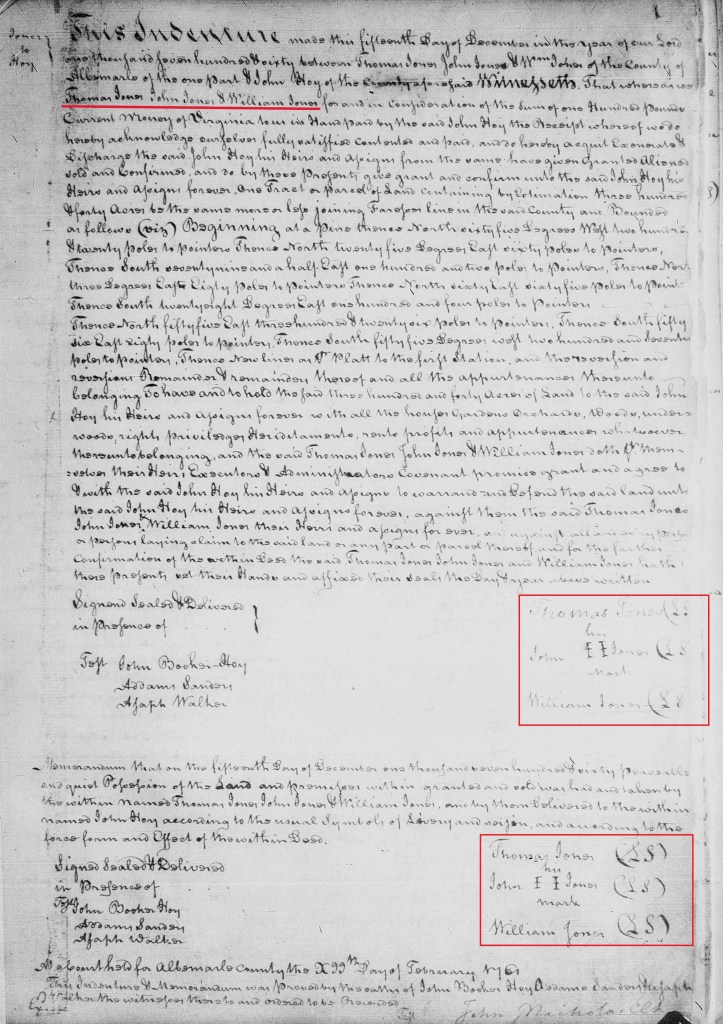 Jones
to
Hoy
1
This Indenture made this fifteenth Day of December in the year of our Lord
one thousand seven hundred & sixty between Thomas Jones John Jones & Wm Jones of the County of
Albemarle of the one part & John Hoy of the County aforesaid Witnesseth. That whereas we
Thomas Jones John Jones & William Jones for and in Consideration of the Sum of one Hundred Pounds
Current Money of Virginia to us in Hand paid by the said John Hoy the Receipt whereof we do
hereby acknowledge ourselves fully satisfied Contented and paid, and do hereby acquit Exonerate &
Discharge the said John Hoy his Heirs and Assigns from the same have given Granted Aliened
sold and Confirmed, and do by these presents give grant and confirm unto the said John Hoy his
Heirs and Assigns forever, One Tract or parcel of Land Containing by Estimation three hundred
& forty Acres be the same more or less joining line in the said County and Bounded
as follows (viz) Beginning at a pine thence North sixty five Degrees West two hundred
& twenty poles to pointers Thence North twenty five Degrees East sixty poles to pointers,
Thence South seventy nine and a half East one hundred and two poles to pointers, Thence North
three Degrees East Eighty poles to pointers Thence North sixty East sixty five poles to point
Thence South twenty eight Degrees East one hundred and four poles to pointers
Thence North fifty five East three hundred & twenty six poles to pointers, Thence South fifty
six East Eighty poles to pointers, Thence South fifty five Degrees west two hundred and seventy
poles to pointers, Thence New lines as Platt to the first Station, and the reversion and
reversions Remainder & remainders thereof and all the appurtenances thereunto
belonging To have and to hold the said three hundred and forty Acres of Land to the said John
Hoy his Heirs and Assigns forever with all the houses Gardens Orchards, Woods, under-
woods, rights priviledges Heriditaments, rents profits and appurtenances whatsoever
thereunto belonging, and the said Thomas Jones John Jones & William Jones doth them-
-selves their Heirs Executors & Administrators Covenant promise grant and agree to
& with the said John Hoy his Heirs and Assigns to warrant and Defend the said land unto
the said John Hoy his Heirs and Assigns forever, against them the said Thomas Jones
John Jones William Jones their Heirs and assigns for ever, and against all and every person
or persons laying claim to the said land or any part or parcel thereof, and for the farther
Confirmation of the within Deed the said Thomas Jones John Jones and William Jones hath to
these presents set their Hands and affixed their seals the Day & year above written
Signend Sealed & Delivered
in presence of
Test John Bocker Hoy
Addams Sanders
Asaph Walker
Thomas Jones (LS
his
John II Jones (LS
Mark
William Jones (LS
Memorandum that on the fifteenth Day of December one thousand seven hundred & sixty peaceable
and quiet Possession of the Land and premises within granted and sold was had and taken by
the within Named Thomas Jones John Jones & William Jones, and by them Delivered to the within
named John Hoy according to the usual Symbols of Livery and seizen, and according to the
force form and Effect of the within Deed.
Signed Sealed & Delivered
in Presence of
Test John Bocker Hoy
Addams Sanders
Asaph Walker
Thomas Jones (LS)
his
John II Jones (LS)
mark
William Jones (LS)
At a Court held for Albemarle County the Day of February 1761
This Indenture & Memorandum was proved by the oaths of John Bocker Hoy Addams Sanders & Asaph
Walker the witnesses thereto and ordered to be Recorded
John Nicholas Clk